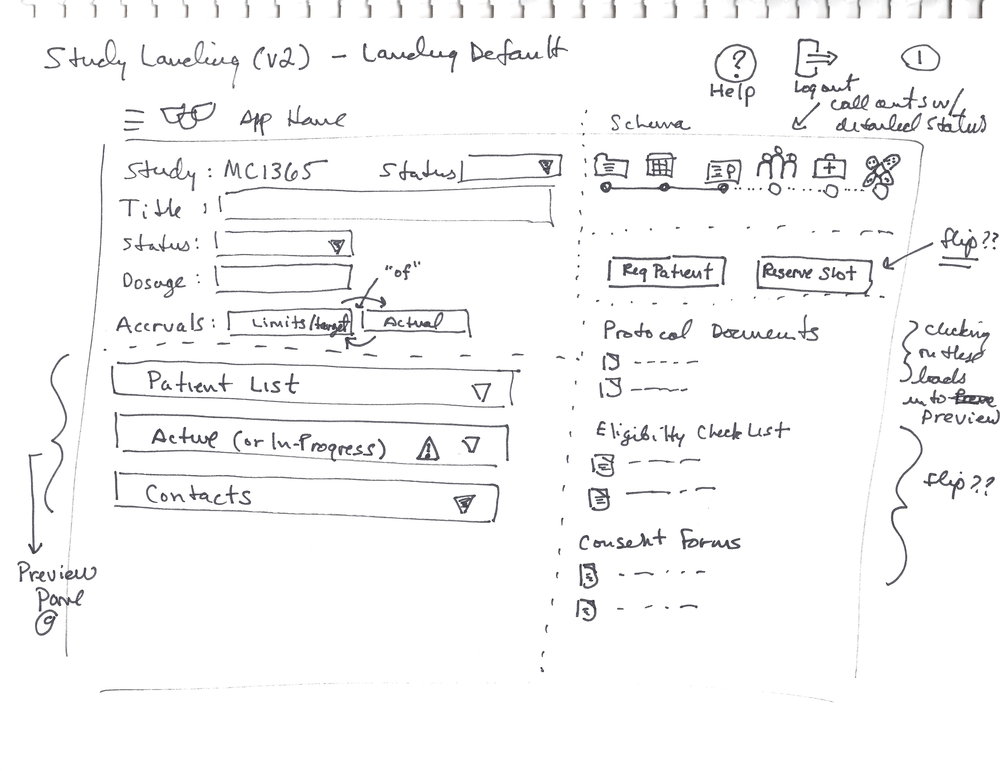 Study Landing (v2) - Landing Default
?
Help
Logout
1
call outs w/
detailed status
App Name
Schema
Study: MC1365
Status
Title:
Status:
Dosage:
"of"
Accruals:
Limits/target
Actual
Patient List
Active (or In-Progress)
!
Contacts
Preview
Pane
Req Patient
Reserve Slot
flip??
Protocol Documents
Eligibility CheckList
Consent Forms
clicking
on these
loads
into
Preview
flip??